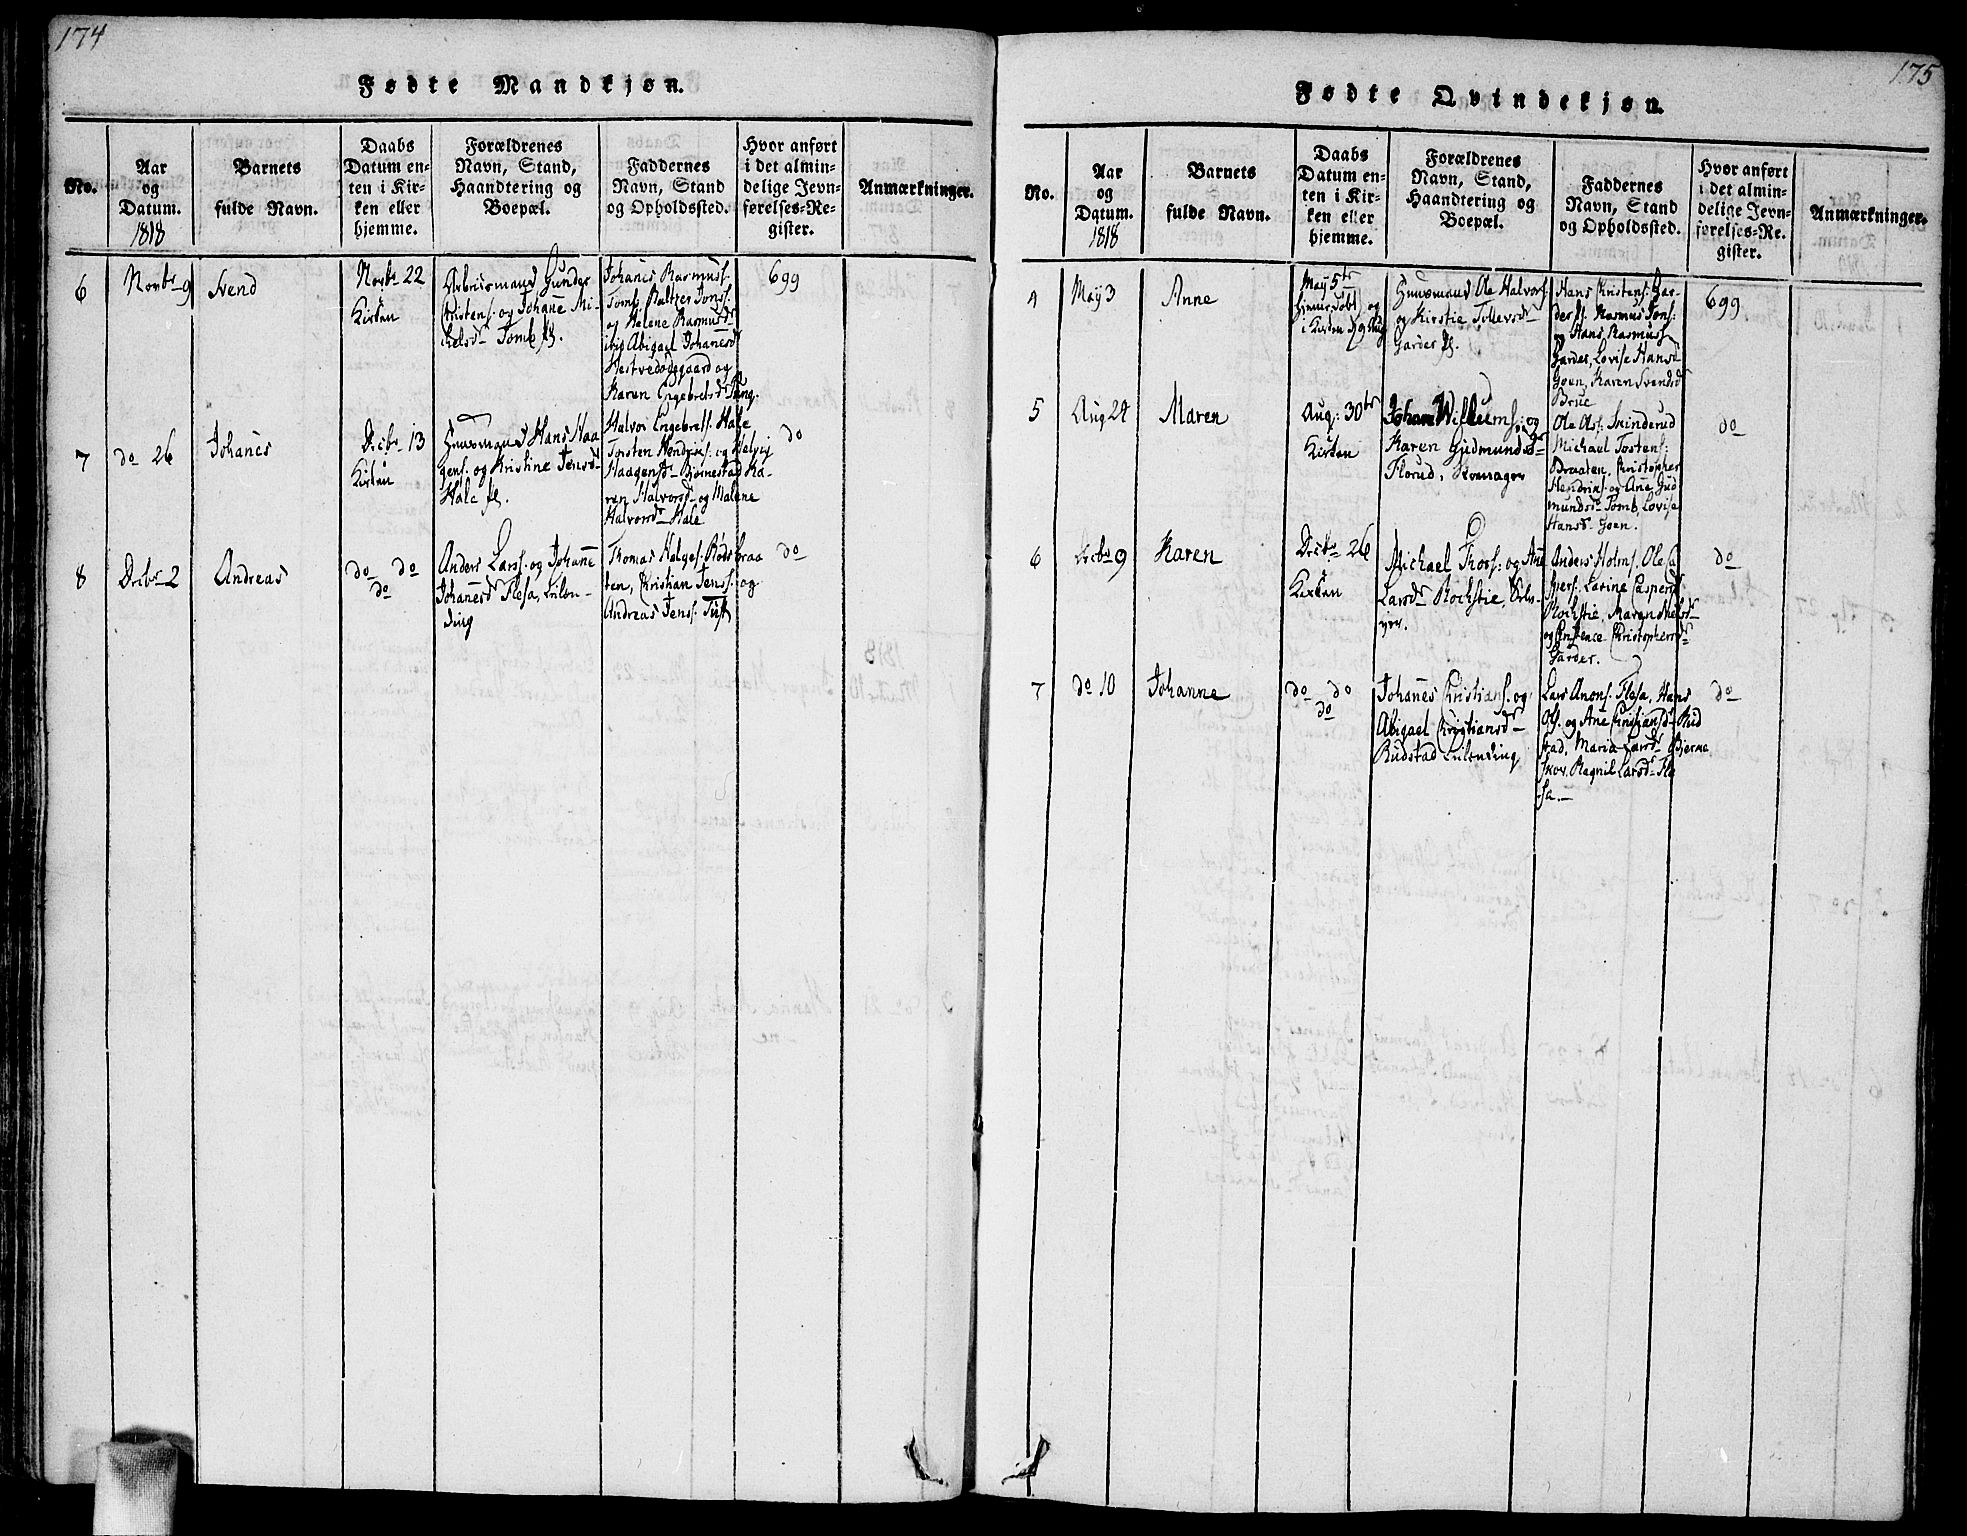 174
Fødte Mandkjøn.
No.
Aar
og
Datum.
1818
Barnets
fulde Navn.
Daabs
Datum en-
ten i Kir-
ken eller
hjemme.
Forældrenes
Navn, Stand,
Haandtering og
Boepæl.
Faddernes
Navn, Stand
og Opholdssted.
Hvor anført
i det almin-
delige Jevn-
førelses-Re-
gister.
Anmærkninger.
6
Novbr 9
Svend
Novbr 22
Kirken
Gunder
Kristens: og Johane Mi-
chelsd Tomb
Johanes Rasmuss:
Tomb, Jonss:
og Helene Rasmusd
Abigael Johanesd
Hestvedødegaard og
Karen Engebretsd
699
7
do 26
Johanes
Decbr 13
Kirken
Huusmand Hans Haa
gens: og Kristine Jensd
Hale
Halvor Engebrets: Hale
Torsten Hendrics: og Helvig
Haagensd Bjørnestad Ka-
ren Halvorsd og Malene
Halvorsd Hale
do
8
Decbr 2
Andreas
do do
do
Anders Larss: og Johane
Johanesd Flesa, Leilen-
ding
Thomas Helges: Rødsbraa
ten, Christian Jenss: og
Andreas Jenss:
do
175
Fødte Qvindekjøn.
No.
Aar
og
Datum.
1818
Barnets
fulde Navn.
Daabs
Datum en-
ten i Kir-
ken eller
hjemme.
Forældrenes
Navn, Stand,
Haandtering og
Boepæl.
Faddernes
Navn, Stand
og Opholdssted.
Hvor anført
i det almin-
delige Jevn-
førelses-Re-
gister.
Anmærkninger.
4
May 3
Anne
May 5te
hjemmedøbt og
i Kirken d 9 Aug
Huusmand Ole Halvors
og Kirstie Tollevsd
Garder
Hans Kristens: Gar-
der, Rasmus Jons:
og Hans Rasmuss
Garder, Lovise Hansd
Goen, Karen Svendsd
Brue
699
5
Aug 24
Maren
Aug: 30te
Kirken
Johan Willums: og
Karen Gudmundsd
Florud, Skomager
Ole Ols: Skinderud
Michael Tostens:
Braaten, Christopher
Hendrics: og Ane Gud
mundsd Tomb, Lovise
Hansd Goen.
do
6
Decbr 9
Karen
Decbr 26
Kirken
Michael Thors: og Ane
Larsd Rochstie, Selv-
eyer.
Anders Holms, Ole Ca
spers: Larine Caspersd
Rochstie, Maren Nielsd
og Christopherd
Garder.
do
7
do 10
Johanne
do do
do
Johanes Christians: og
Abigael Christiansd
Rudstad Leilending
Lars Anons: Flesa, Hans
Ols: og Ane Christiansd Rud
stad, Maria Larsd Bjerne
skov, Ragnil Larsd Fle
sa.
do